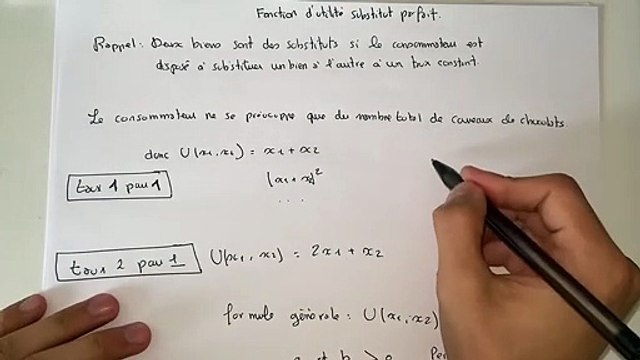 Fonction d'utilité substitut parfait.
Rappel : Deux biens sont des substituts si le consommateur est
disposé à substituer un bien à l'autre à un taux constant.
Le consommateur ne se préoccupe que du nombre total de carreaux de chocolats
donc U(x1, x2) = x1 + x2
taux 1 pour 1
(x1 + x2)²
...
taux 2 pour 1 U(x1, x2) = 2x1 + x2
formule générale : U(x1, x2)